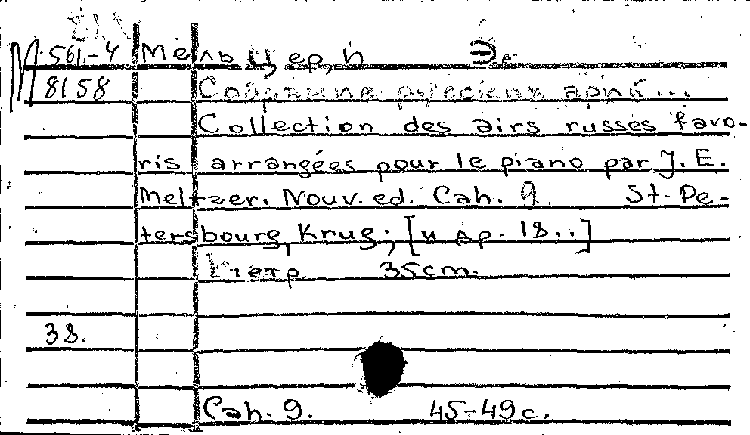 М 561-4 Мельцер, И Э.
8158 Собрание русских арий...
Collection des airs russes favo-
ris arrangées pour le piano par J. E.
Meltzer. Nouv. ed. Cah. 9 St-Pe-
tersbourg, Krug; [и др. 18..]
1 тетр 35cm.
38.
Cah. 9. 45-49 с.